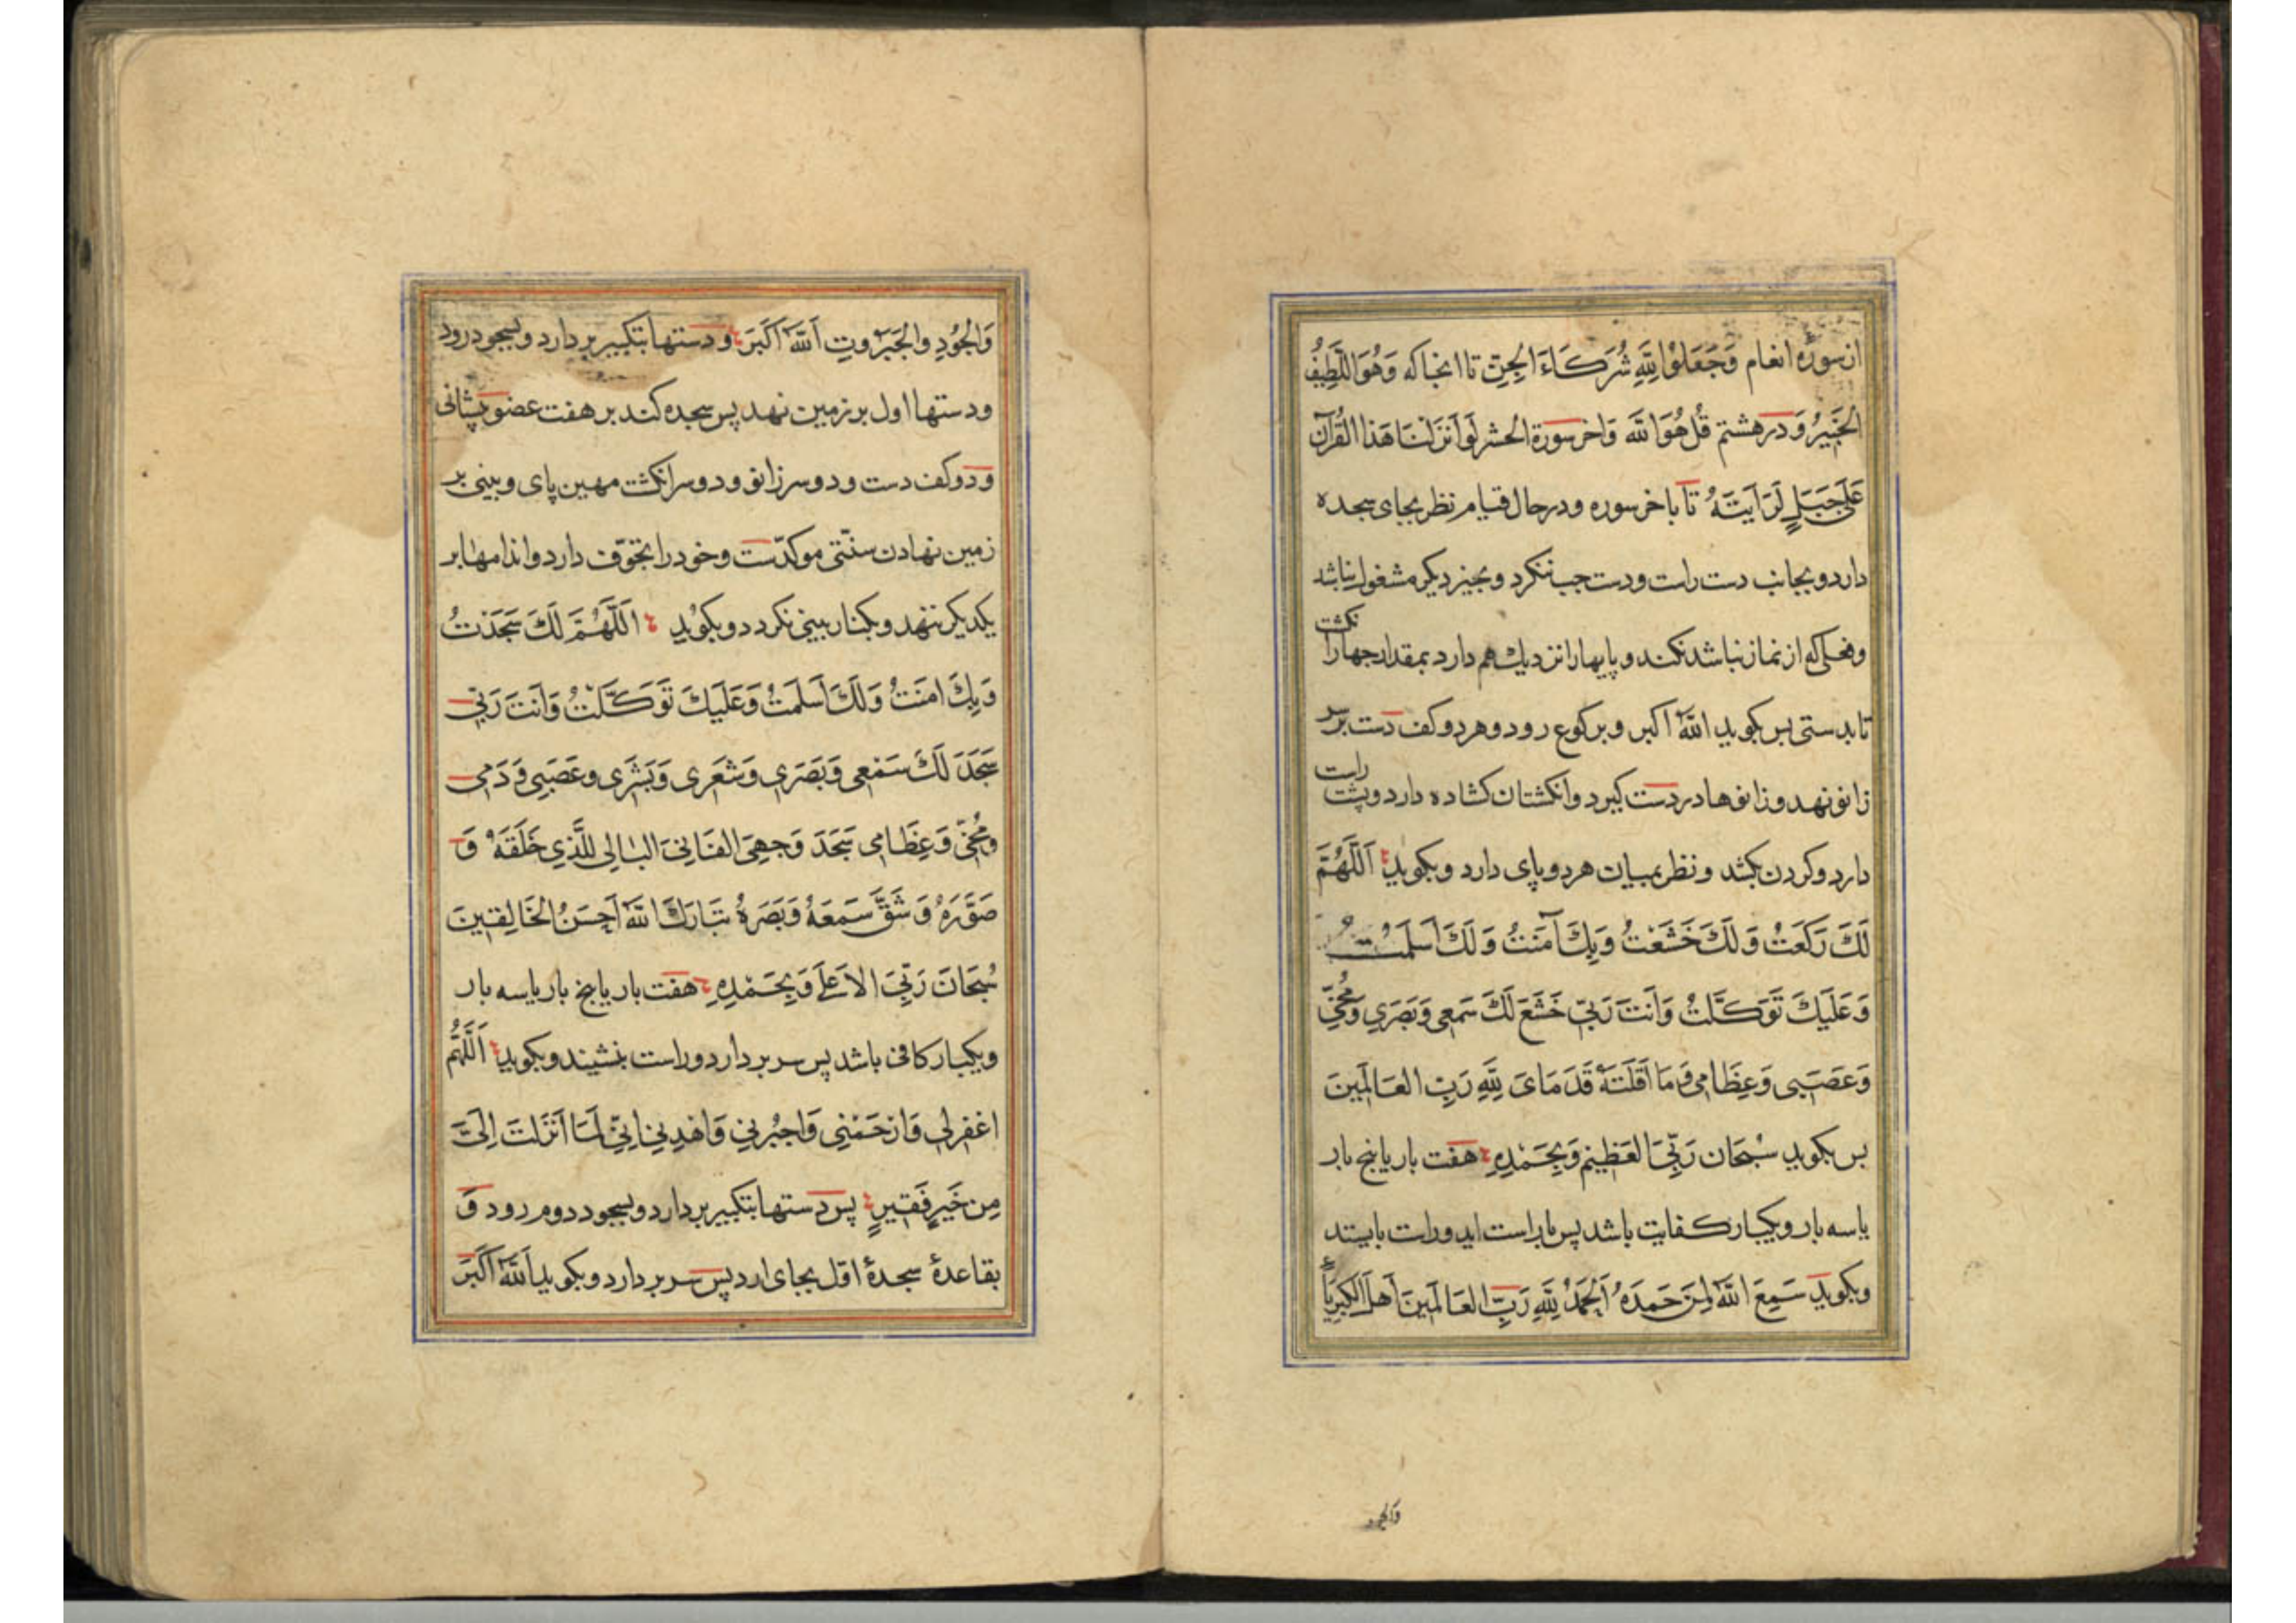 از سورهٔ انعام وَجَعَلُوْا لِلّٰهِ شُرَكَاءَ الْجِنَّ تا انجا كه وَهُوَ اللَّطِيفُ
الْخَبِيرُ وَ در هشتم قُلْ هُوَ اللَّه وَاخر سورة الحشر لَوْ اَنْزَلْنَا هَذَا الْقُرآنَ
عَلَى جَبَلٍ لَرَاَيْتَهُ تا باخر سوره ودر حال قيام نظر بجاى سجده
دارد و بجانب دست راست ودست چپ ننكرد و بچيز ديكر مشغول نباشد
وفعلى كه از نماز نباشد نكند و پايها را نزديك هم دارد بمقدار چهار انكشت
تا بدستى پس بكويد اللّٰه اكبر و بركوع رود و هر دو كف دست بر سر
زانو نهد و زانوها در دست كيرد و انكشتان كشاده دارد و پشت راست
دارد و كردن بكشد و نظر بميان هر دو پاى دارد و بكويد اَللَّهُمَّ
لَكَ رَكَعْتُ وَ لَكَ خَشَعْتُ وَبِكَ آمَنْتُ وَ لَكَ اَسْلَمْتُ
وَ عَلَيْكَ تَوَكَّلْتُ وَاَنْتَ رَبِّي خَشَعَ لَكَ سَمْعِى وَبَصَرِي وَمُخِّي
وَعَصَبِى وَعِظَامِى وَمَا اَقَلَّتْهُ قَدَمَاىَ لِلّٰهِ رَبِّ العَالَمِينَ
پس بكويد سُبْحَانَ رَبِّيَ العَظِيْمِ وَبِحَمْدِهِ هفت بار يا پنج بار
يا سه بار و يكبار كفايت باشد پس باز راست ايد وراست بايستد
وبكويد سَمِعَ اللّٰهُ لِمَنْ حَمِدَهُ اَلْحَمْدُ لِلّٰهِ رَبِّ العَالَمِينَ اَهْلَ الْكِبْرِيَاءِ
والجود
وَالْجُودِ وَالْجَبَرُوتِ اَللّٰهُ اَكْبَرَ و دستها بتكبير بردارد و بسجود رود
ودستها اول بر زمين نهد پس سجده كند بر هفت عضو پشانى
ودو كف دست و دو سر زانو و دو سر انكشت مهين پاى و بينى بر
زمين نهادن سنّتى موكدّست وخود را بخوّف دارد و اندامها بر
يكديكر ننهد و بكنار بينى نكردد و بكوُيدِ اَللَّهُمَّ لَكَ سَجَدْتُ
وَبِكَ امَنْتُ وَلَكَ اَسْلَمْتُ وَعَلَيْكَ تَوَكَّلْتُ وَاَنْتَ رَبِّي
سَجَدَ لَكَ سَمْعِى وَبَصَرِي وَشَعَرِى وَبَشَرِى وعَصَبِى وَدَمِى
ومُخِّى وَعِظَامِى سَجَدَ وَجْهِىَ الفَانِىَ البَالِى لِلَّذِي خَلَقَهُ وَ
صَوَّرَهُ وَ شَقَّ سَمْعَهُ وَبَصَرَهُ تَبَارَكَ اللّٰهُ اَحْسَنُ الْخَالِقِينَ
سُبْحَانَ رَبِّيَ الاَعْلَى وَبِحَمْدِهِ هفت بار يا پنج بار يا سه بار
ويكبار كافى باشد پس سر بردارد وراست بنشيند وبكويد اَللَّهُمَّ
اغْفِرْلِي وَارْحَمْنِي وَاجْبُرْنِي وَاهْدِنِي اِنِّي لِمَا اَنْزَلْتَ اِلَىَّ
مِنْ خَيْرٍ فَقِيرٍ پس دستها بتكبير بردارد و بسجود دوم رود وَ
بقاعدهٔ سجدهٔ اوّل بجاى ارد پس سر بردارد وبكويد اَللّٰهُ اَكْبَرَ